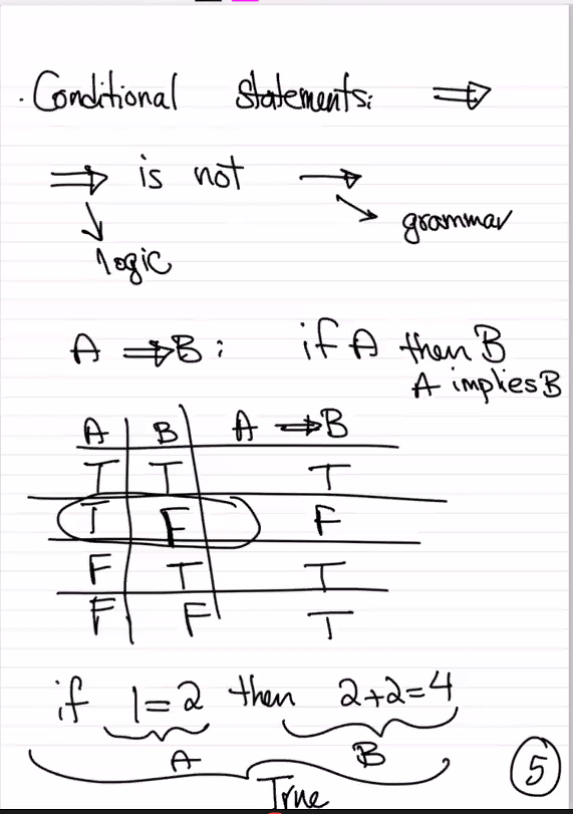 . Conditional Statements: ⇒
⇒ is not →
grammar
logic
A ⇒ B : if A then B
A implies B
A B A ⇒ B
T T T
T F F
F T T
F F T
if 1=2 then 2+2=4
A B
True
5